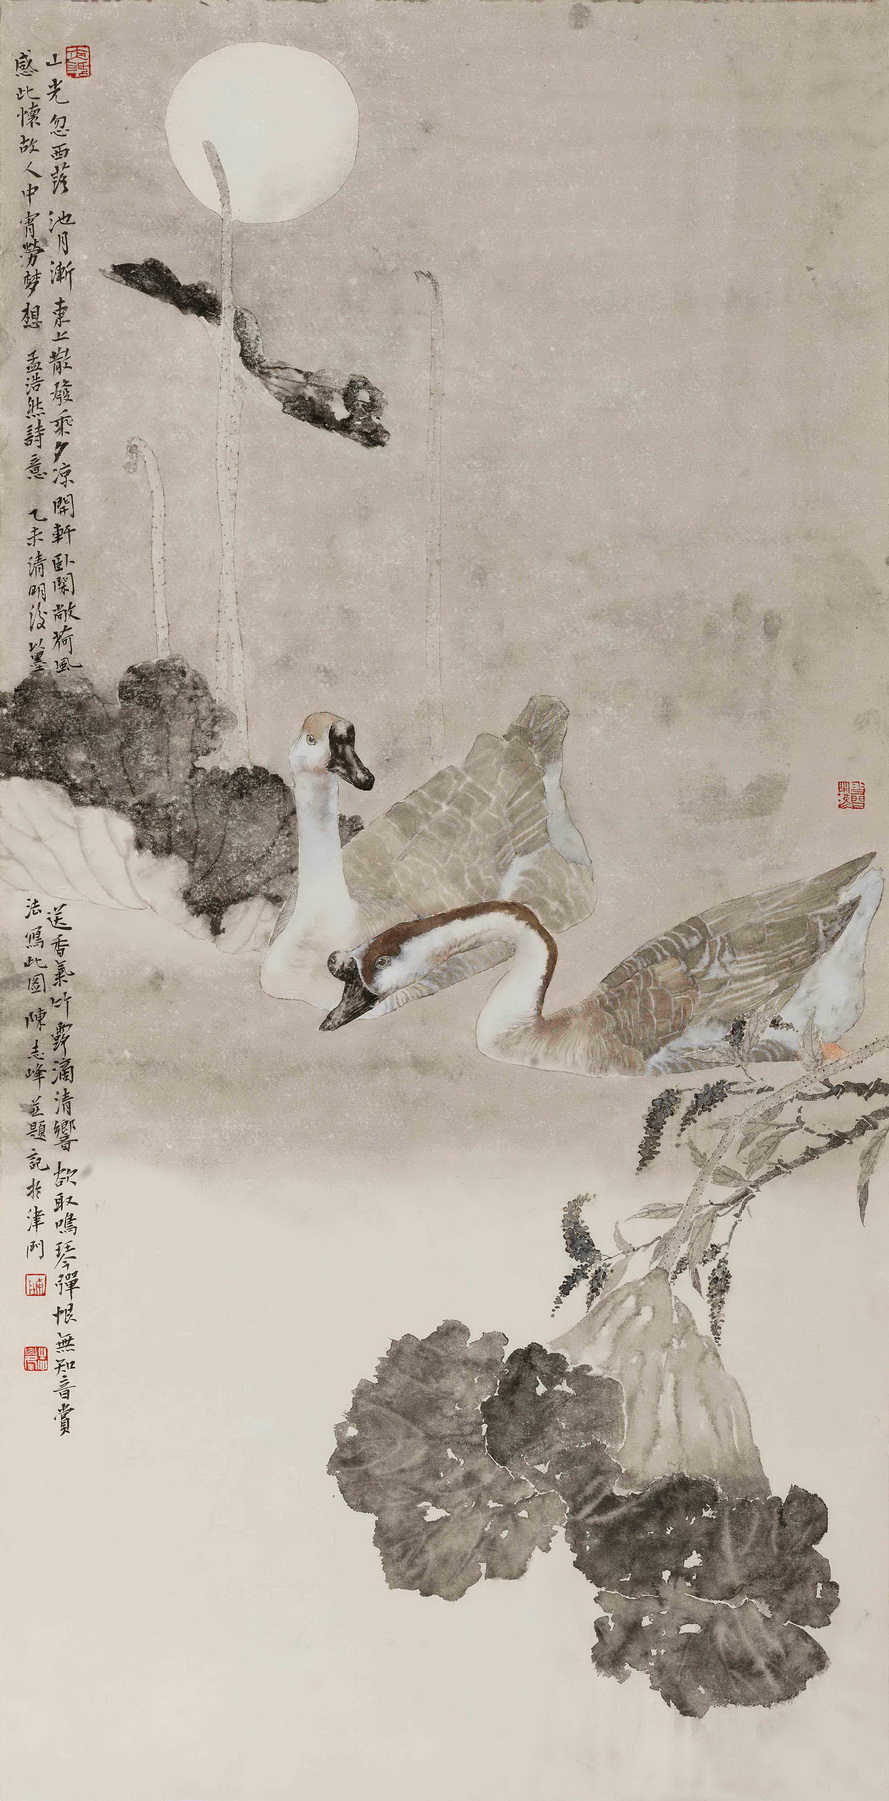 山光忽西落池月漸東上散發乘夕凉開軒臥閑敞荷風送香氣竹露滴清響欲取鳴琴彈恨無知音賞
感此懷故人中宵勞梦想 孟浩然詩意 乙未清明後以墨法寫此圖陳志峰並題記於津門